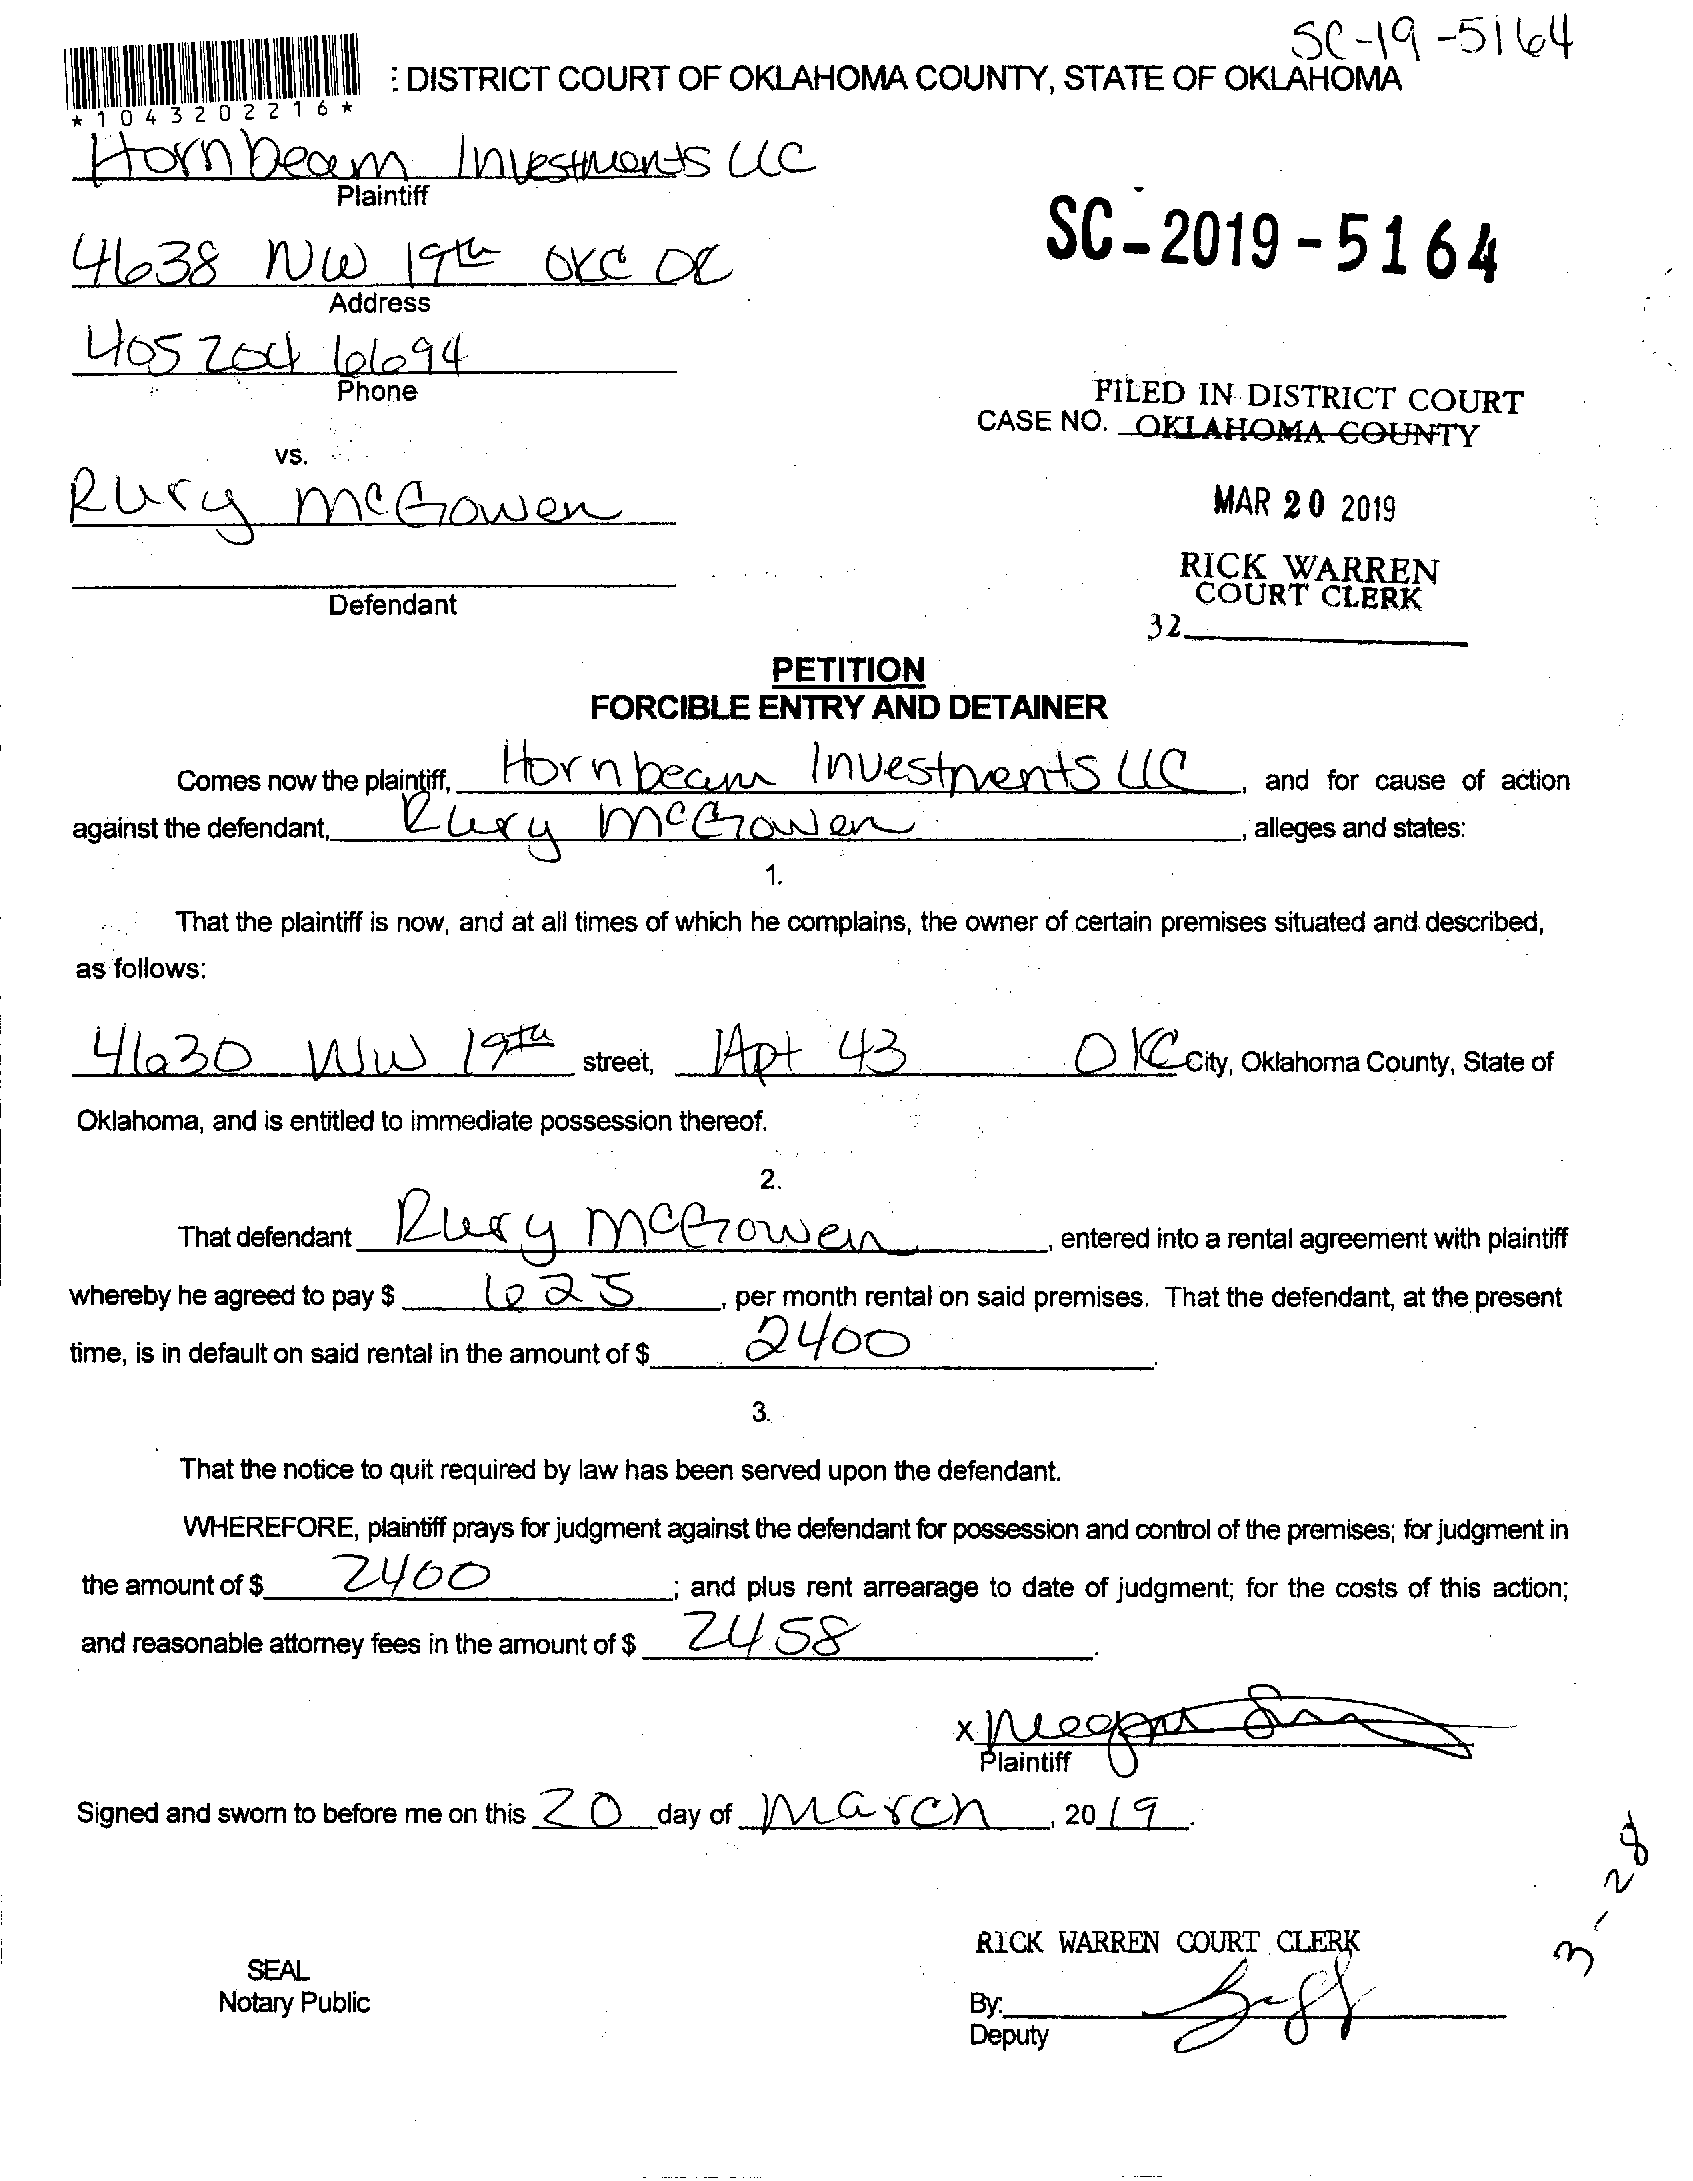 SC-19-5164
: DISTRICT COURT OF OKLAHOMA COUNTY, STATE OF OKLAHOMA
*1043202216*
Hornbeam Investments LLC
Plaintiff
SC-2019-5164
4638 NW 19th OKC OK
Address
405 204 6694
Phone
FILED IN DISTRICT COURT
CASE NO. OKLAHOMA COUNTY
vs.
Rury McGowen
MAR 20 2019
RICK WARREN
COURT CLERK
Defendant
32
PETITION
FORCIBLE ENTRY AND DETAINER
Comes now the plaintiff, Hornbeam Investments LLC, and for cause of action
against the defendant, Rury McGowen, alleges and states:
1.
That the plaintiff is now, and at all times of which he complains, the owner of certain premises situated and described,
as follows:
4630 NW 19th street, Apt 43 OKC City, Oklahoma County, State of
Oklahoma, and is entitled to immediate possession thereof.
2.
That defendant Rury McGowen, entered into a rental agreement with plaintiff
whereby he agreed to pay $ 625, per month rental on said premises. That the defendant, at the present
time, is in default on said rental in the amount of $ 2400.
3.
That the notice to quit required by law has been served upon the defendant.
WHEREFORE, plaintiff prays for judgment against the defendant for possession and control of the premises; for judgment in
the amount of $ 2400; and plus rent arrearage to date of judgment; for the costs of this action;
and reasonable attorney fees in the amount of $ 2458.
x Megan
Plaintiff
Signed and sworn to before me on this 20 day of March, 2019.
3-28
RICK WARREN COURT CLERK
SEAL
Notary Public
By:
Deputy